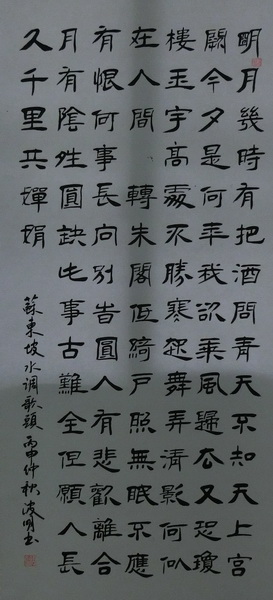 明月幾時有把酒問青天不知天上宮
闕今夕是何年我欲乘風歸去又恐瓊
樓玉宇高處不勝寒起舞弄清影何似
在人間 轉朱閣低綺戶照無眠不應
有恨何事長向別旹圓人有悲歡離合
月有陰姓圓缺此事古難全但願人長
久千里共嬋娟
蘇東坡水调歌頭 丙申仲秋波明书